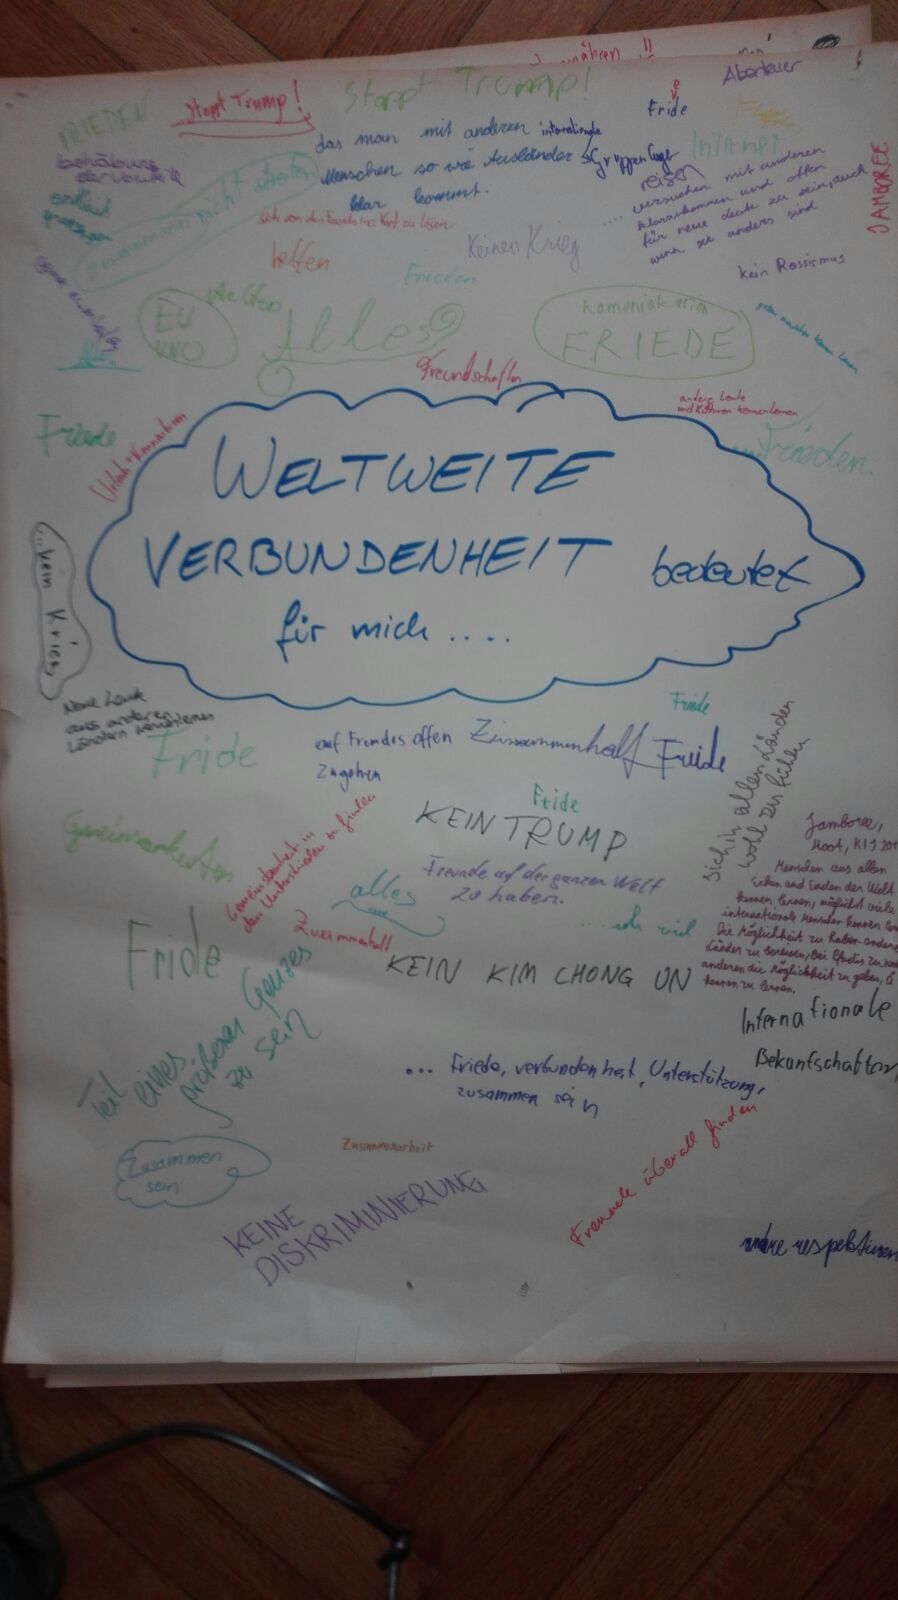 Abenteuer
FRIEDEN
Stoppt Trump!
Stoppt Trump!
e
Fride
das man mit anderen internationale
Menschen so wie Ausländer
klar kommt.
Gruppenlager
Internet
JAMBOREE
reisen
.... versuchen mit anderen
klarzukommen und offen
für neue Leute zu sein, auch
wenn sie anders sind
kein Rassismus
zusammen nicht streiten
helfen
Frieden
Keinen Krieg
EU
UNO
Helfen
Alles
Komoniekation
FRIEDE
Freundschaften
andere Leute
und Kulturen kennenlernen
Friede
Frieden.
WELTWEITE
VERBUNDENHEIT bedeutet
für mich ....
...kein Krieg
Neue Leute
aus anderen
Ländern kennenlernen
Fride
auf Fremdes offen
zugehen
Zusammenhalt
Friede
Friede
sich in allen Ländern
wohl zu fühlen
Fride
KEIN TRUMP
Gemeinsamkeiten
Gemeindenheit in
den Unterschieden zu finden
Freunde auf der ganzen Welt
zu haben.
alles
...sehr viel
Zusammenhalt
Jamboree,
Moot, KIJ 201
Menschen aus allen
Ecken und Enden der Welt
kennen lernen, möglichst viele
internationale Menschen kennen
Die Möglichkeit zu haben andere
Länder zu bereisen,
anderen die Möglichkeit zu geben, Ö
kennen zu lernen.
Fride
KEIN KIM CHONG UN
Internationale
Bekantschaften
Teil eines
großeren Ganzes
zu sein
... Friede, verbundenheit, Unterstützung,
zusammen sein
Zusammen
sein
Zusammenarbeit
Freunde überall finden
KEINE
DISKRIMINIERUNG
andere respektieren